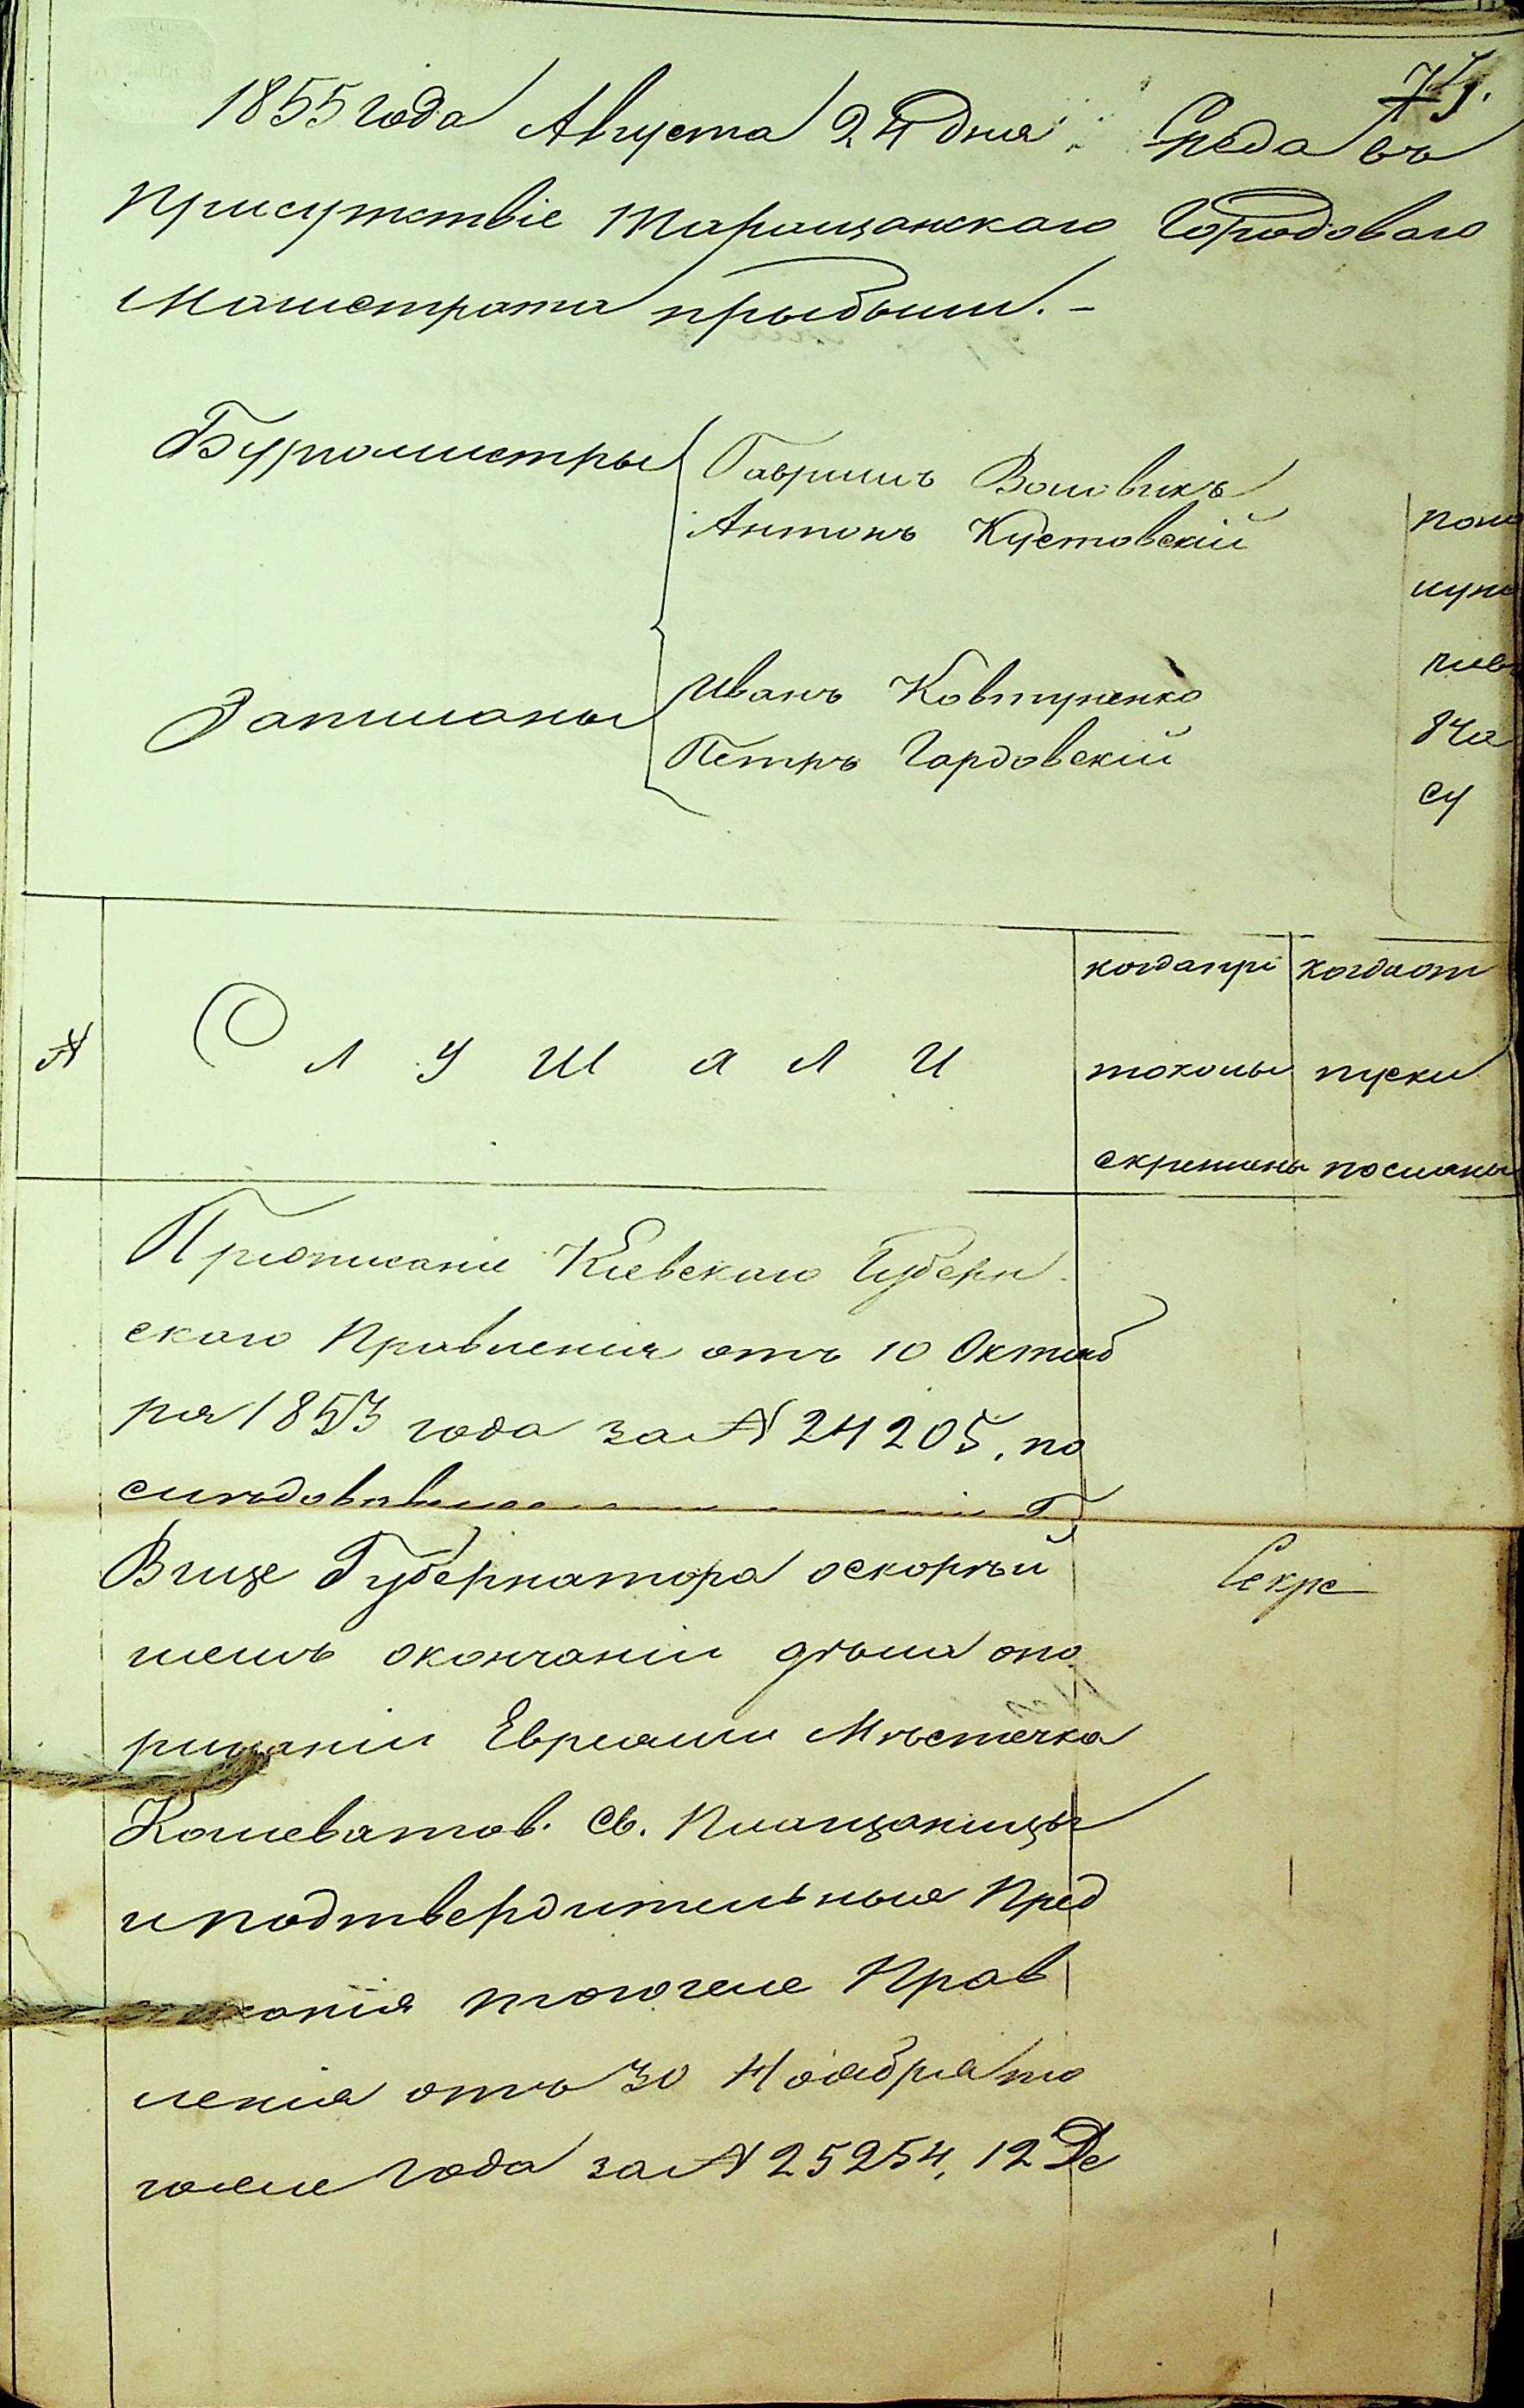 1855 года Августа 24 дня. Среда въ
присутствіе Таращанскаго Городоваго
Магистрата прыбыли. -
Бургомистры
Гавриилъ Воловикъ
Антонъ Кустовскій
Ратманы
Иванъ Ковтуненко
Петръ Гордовскій
по
ву
8 ча
су
№
Слушали
когда про
токолы
скреплены
когда от
пуски
посланы
Предписаніе Кіевскаго Губерн
скаго Правленія отъ 10 Октяб
ря 1853 года за № 24205, по
следовавшее
Вице Губернатора оскорѣй
шемъ окончаніи дѣла опо
рицаніи Евреями Мѣстечка
Кошеватов. Св. Плащаницы
и подтвердительныя Пред
писанія тогоже Прав
ленія отъ 30 Ноября то
гоже года за № 25254, 12 Де
Секре